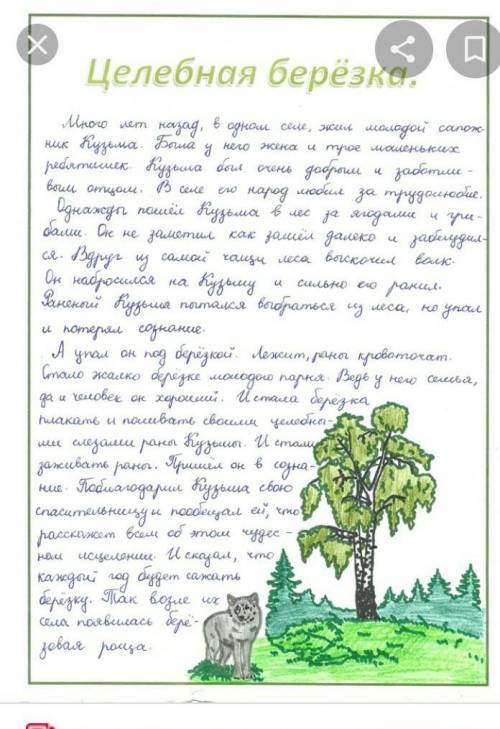 Целебная берёзка.
Много лет назад, в одном селе, жил молодой сапож-
ник Кузьма. Была у него жена и трое маленьких
ребятишек. Кузьма был очень добрым и заботли-
вым отцом. В селе его народ любил за трудолюбие.
Однажды пошёл Кузьма в лес за ягодами и гри-
бами. Он не заметил как зашёл далеко и заблудил-
ся. Вдруг из самой чащи леса выскочил волк.
Он набросился на Кузьму и сильно его ранил.
Раненый Кузьма пытался выбраться из леса, но упал
и потерял сознание.
А упал он под берёзкой. Лежит, раны кровоточат.
Стало жалко берёзке молодого парня. Ведь у него семья,
да и человек он хороший. И стала берёзка
плакать и поливать своими целебны-
ми слезами раны Кузьмы. И стали
заживать раны. Пришёл он в созна-
ние. Поблагодарил Кузьма свою
спасительницу и пообещал ей, что
расскажет всем об этом чудес-
ном исцелении. И сказал, что
каждый год будет сажать
берёзку. Так возле их
села появилась берё-
зовая роща.